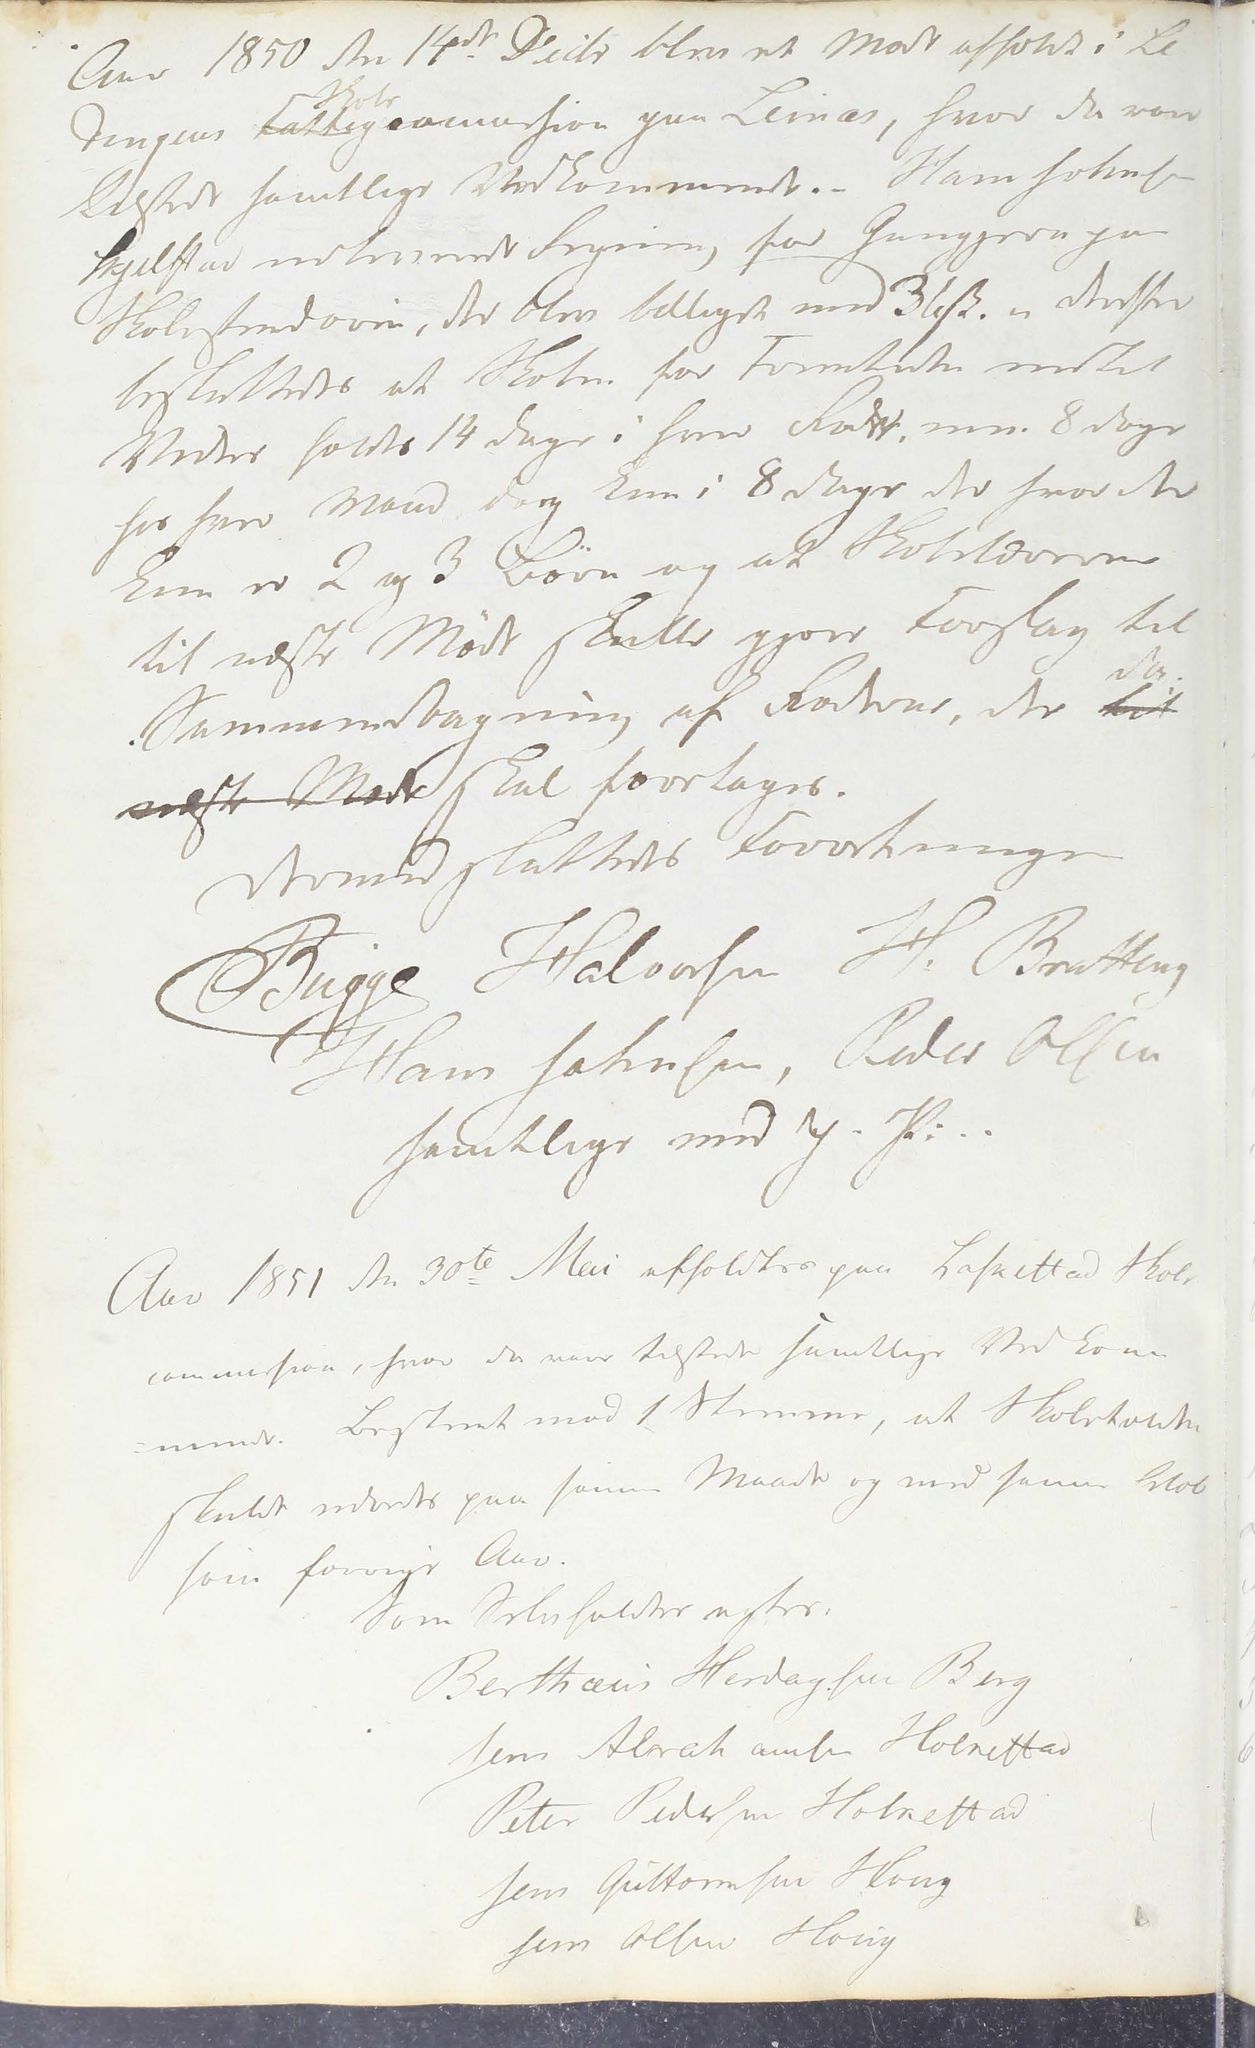 Aar 1850 den 14de Decbr blev et Møde afholdt i Le
dingens Fattig Skole commission paa Leines, hvor da vare
tilstede samtlige Vedkommende. - Hans Johnsen
Kjelstad indleverede Regning for
Skole, der blev billiget med 36 ß. Derefter
besluttedes at Skolen for Fremtiden indtil
Videre holdes 14 Dage i hver Rode. men 8 Dage
hos hver Mand dog kun i 8 Dage der hvor der
kun er 2 og 3 Börn og at Skolelæreren
til næste Möde skulle gjøre Forslag til
Sammendragning af Roderne, der til da
næste Møde skal foretages.
Dermed sluttedes Forretningen
Bugge Halvorsen H. Bratteng
Hans Johnsen, Peder Olsen
samtlige med p. P.
Aar 1851 den 30te Mai afholdtes paa Skole
commission, hvor da vare tilstede samtlige Vedkom
=mende. Bestemt mod 1 Stemme, at Skoleholdet
skulde udredes paa samme Maade og med samme Beløb
som forrige Aar.
Som Selvholdere agtes.
Berthæus Hendagsen Berg
Jens Abrahamsen Holkestad
Peter Pedersen Holkestad
Jens Guttormsen Houg
Jens Olsen Houg